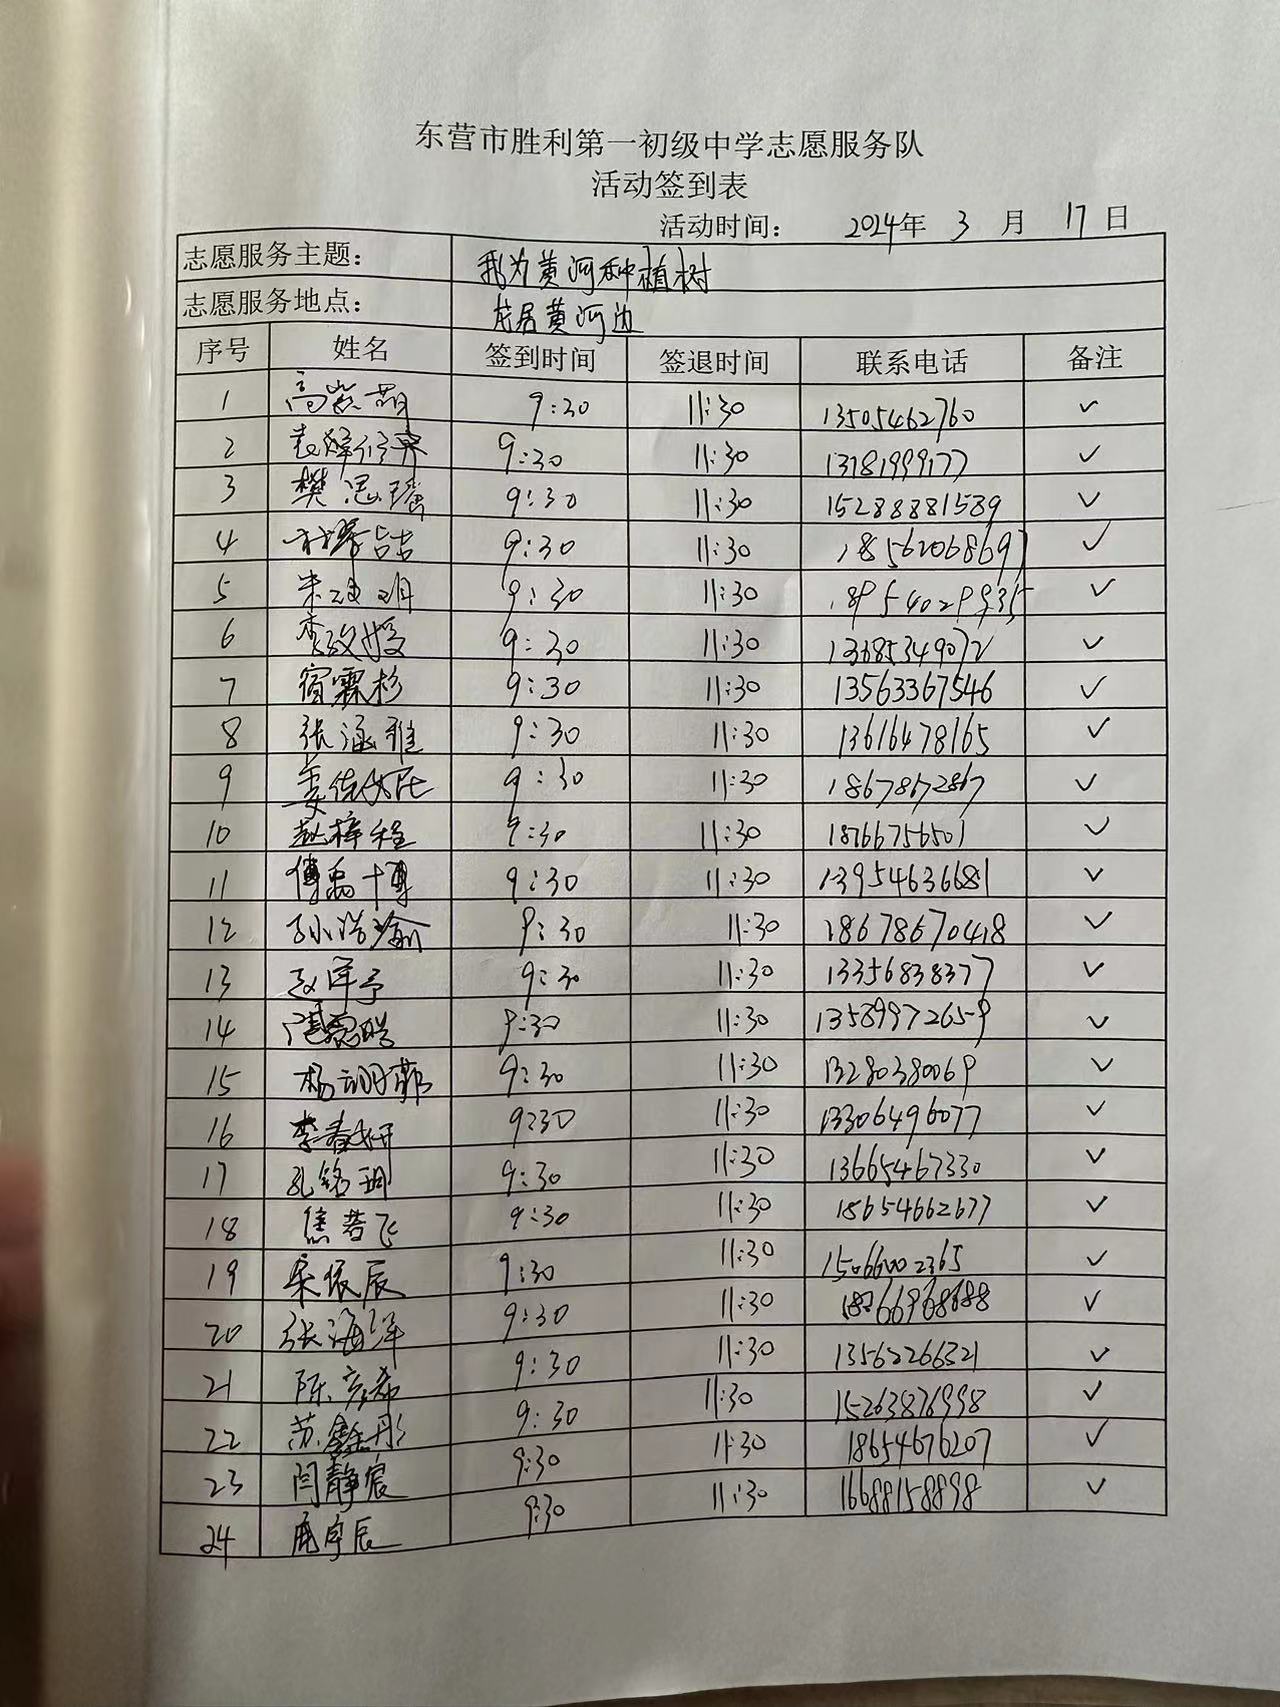 东营市胜利第一初级中学志愿服务队
活动签到表
活动时间： 2024年 3 月 17 日
志愿服务主题： 我为黄河种植树
志愿服务地点： 龙居黄河边
序号 姓名 签到时间 签退时间 联系电话 备注
1 9:30 11:30 13505462760 ✓
2 9:30 11:30 ✓
3 樊思瑶 9:30 11:30 15288881589 ✓
4 9:30 11:30 18562068697 ✓
5 9:30 11:30 ✓
6 9:30 11:30 13685349072 ✓
7 宿霖杉 9:30 11:30 13563367546 ✓
8 张涵雅 9:30 11:30 13616478165 ✓
9 9:30 11:30 18678672867 ✓
10 赵梓程 9:30 11:30 18766756501 ✓
11 9:30 11:30 13954636681 ✓
12 孙浩瑜 9:30 11:30 18678670418 ✓
13 9:30 11:30 13356838377 ✓
14 9:30 11:30 13589972659 ✓
15 9:30 11:30 13280380069 ✓
16 李春妍 9:30 11:30 13306496077 ✓
17 孔铭玥 9:30 11:30 13665467330 ✓
18 焦若飞 9:30 11:30 18654662677 ✓
19 9:30 11:30 15066002365 ✓
20 张海洋 9:30 11:30 ✓
21 陈彦希 9:30 11:30 13562266321 ✓
22 苏鑫彤 9:30 11:30 15263876998 ✓
23 闫静宸 9:30 11:30 18654676207 ✓
24 9:30 11:30 16688158898 ✓